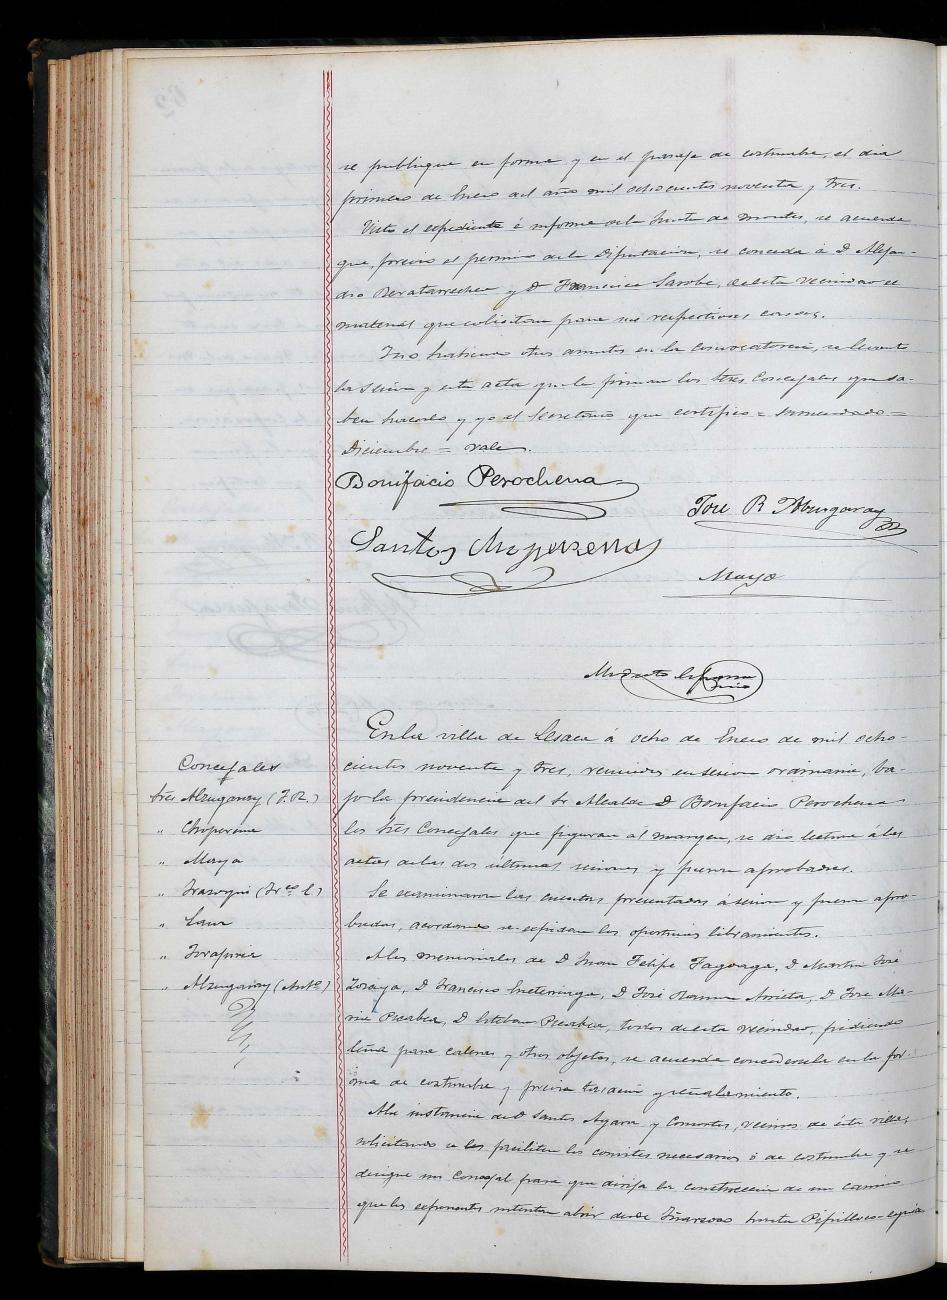 se publique en forma y en el paraje de costumbre, el dia
primero de Enero del año mil ochocientos noventa y tres.
Visto el expediente é informe de la Junta de montes, se acuerda
que, previo el permiso de la Diputacion, se conceda á D. Alejan-
dro Beratarrechea y D. Francisco Sarobe, de esta vecindad el
material que solicitan para sus respectivas casas.
Y no habiendo otros asuntos en la convocatoria, se levantó
la sesion y esta acta que la firman los tres Concejales que sa-
ben hacerlo y yo el Secretario que certifico = enmendado =
Diciembre = vale.
Bonifacio Perochena
José R. Alzugaray
Santos Choperena
Maya
Modesto
En la villa de Lesaca á ocho de Enero de mil ocho-
cientos noventa y tres, reunidos en sesion ordinaria, ba-
jo la presidencia del Sr Alcalde D. Bonifacio Perochena
los tres Concejales que figuran al margen, se dio lectura á las
actas de las dos últimas sesiones y fueron aprobadas.
Concejales
tres Alzugaray (J.R.)
" Choperena
" Maya
" Irazoqui (Fr.co E)
"
"
" Alzugaray (Ant.o)
Se examinaron las cuentas presentadas á sesion y fueron apro-
badas, acordando se expidan los oportunos libramientos.
A los memoriales de D. Juan Felipe Fagoaga, D. Martin José
Zoraya, D. Francisco, D. José Ramon Arrieta, D. José Ma-
ria Picabea, D. Esteban Picabea, todos de esta vecindad, pidiendo
leña para caleras y otros objetos, se acuerda concedersela en la for-
ma de costumbre y previa tasacion y señalamiento.
A la instancia de D. Santos Ayarra y Consortes, vecinos de ésta villa,
solicitando se les faciliten los comites necesarios ó de costumbre y se
designe un Concejal para que dirija la construccion de un camino
que los exponentes intentan abrir desde hasta